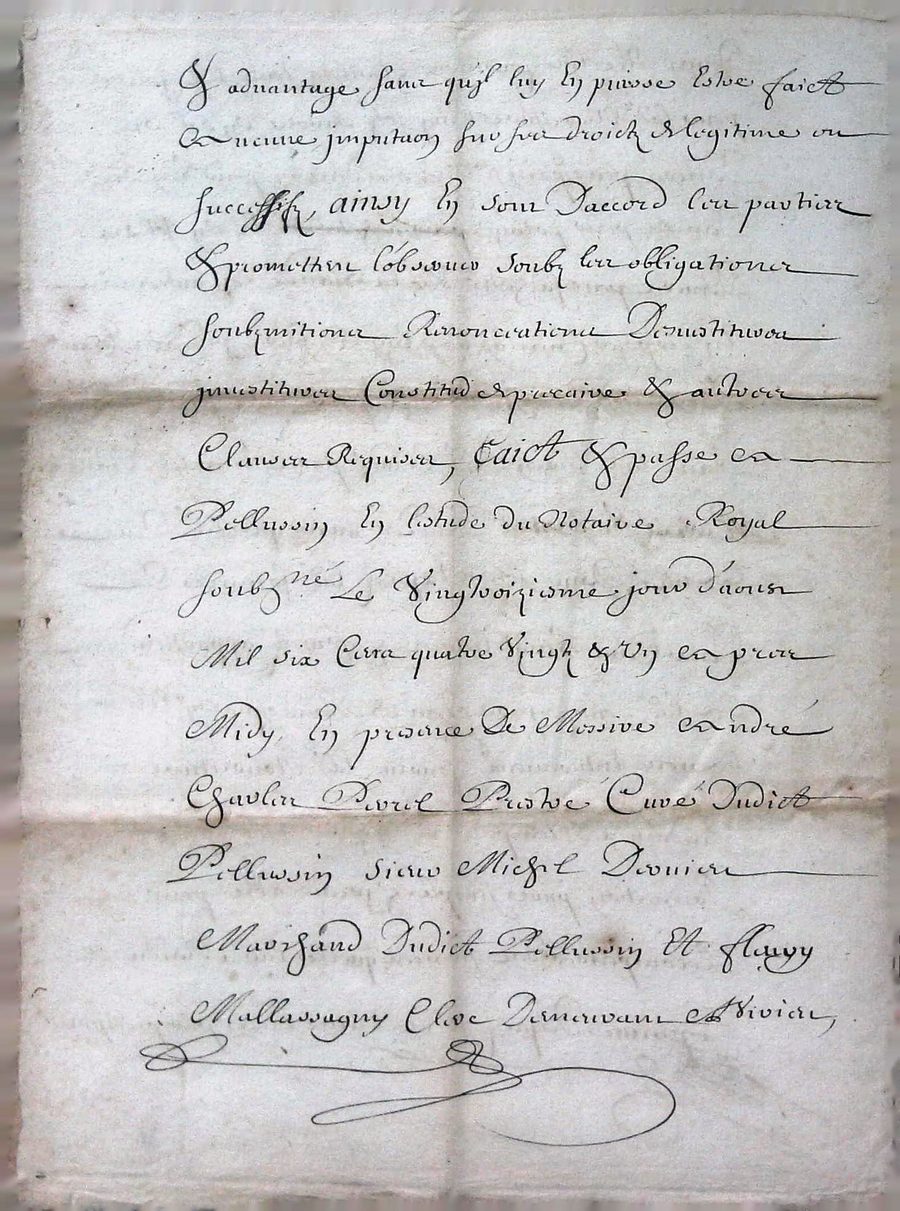 & aduantage sans qu'jl luy En puisse Estre faict
aucune jmputaon sur ses droictz & legitime ou
successifz, ainsy En sont D'accord les parties
& promettent l'observer soubz les obligations
soubzmitions Renonceations Desvestitures
jnvestitures Constitud & precaire & autres
Clauses Requises, faict & passe a
Pellussin En lestude du Notaire Royal
soubzné Le Vingtroizieme jour d'aoust
Mil six Cens quatre Vingtz & Un apres
Midy, En presence De Messire andré
Charles Prestre Curé Dudict
Pellussin sieur Michel
Marchand Dudict Pellussin Et fleury
Mallassagny Clerc Demeurant a Virieu,